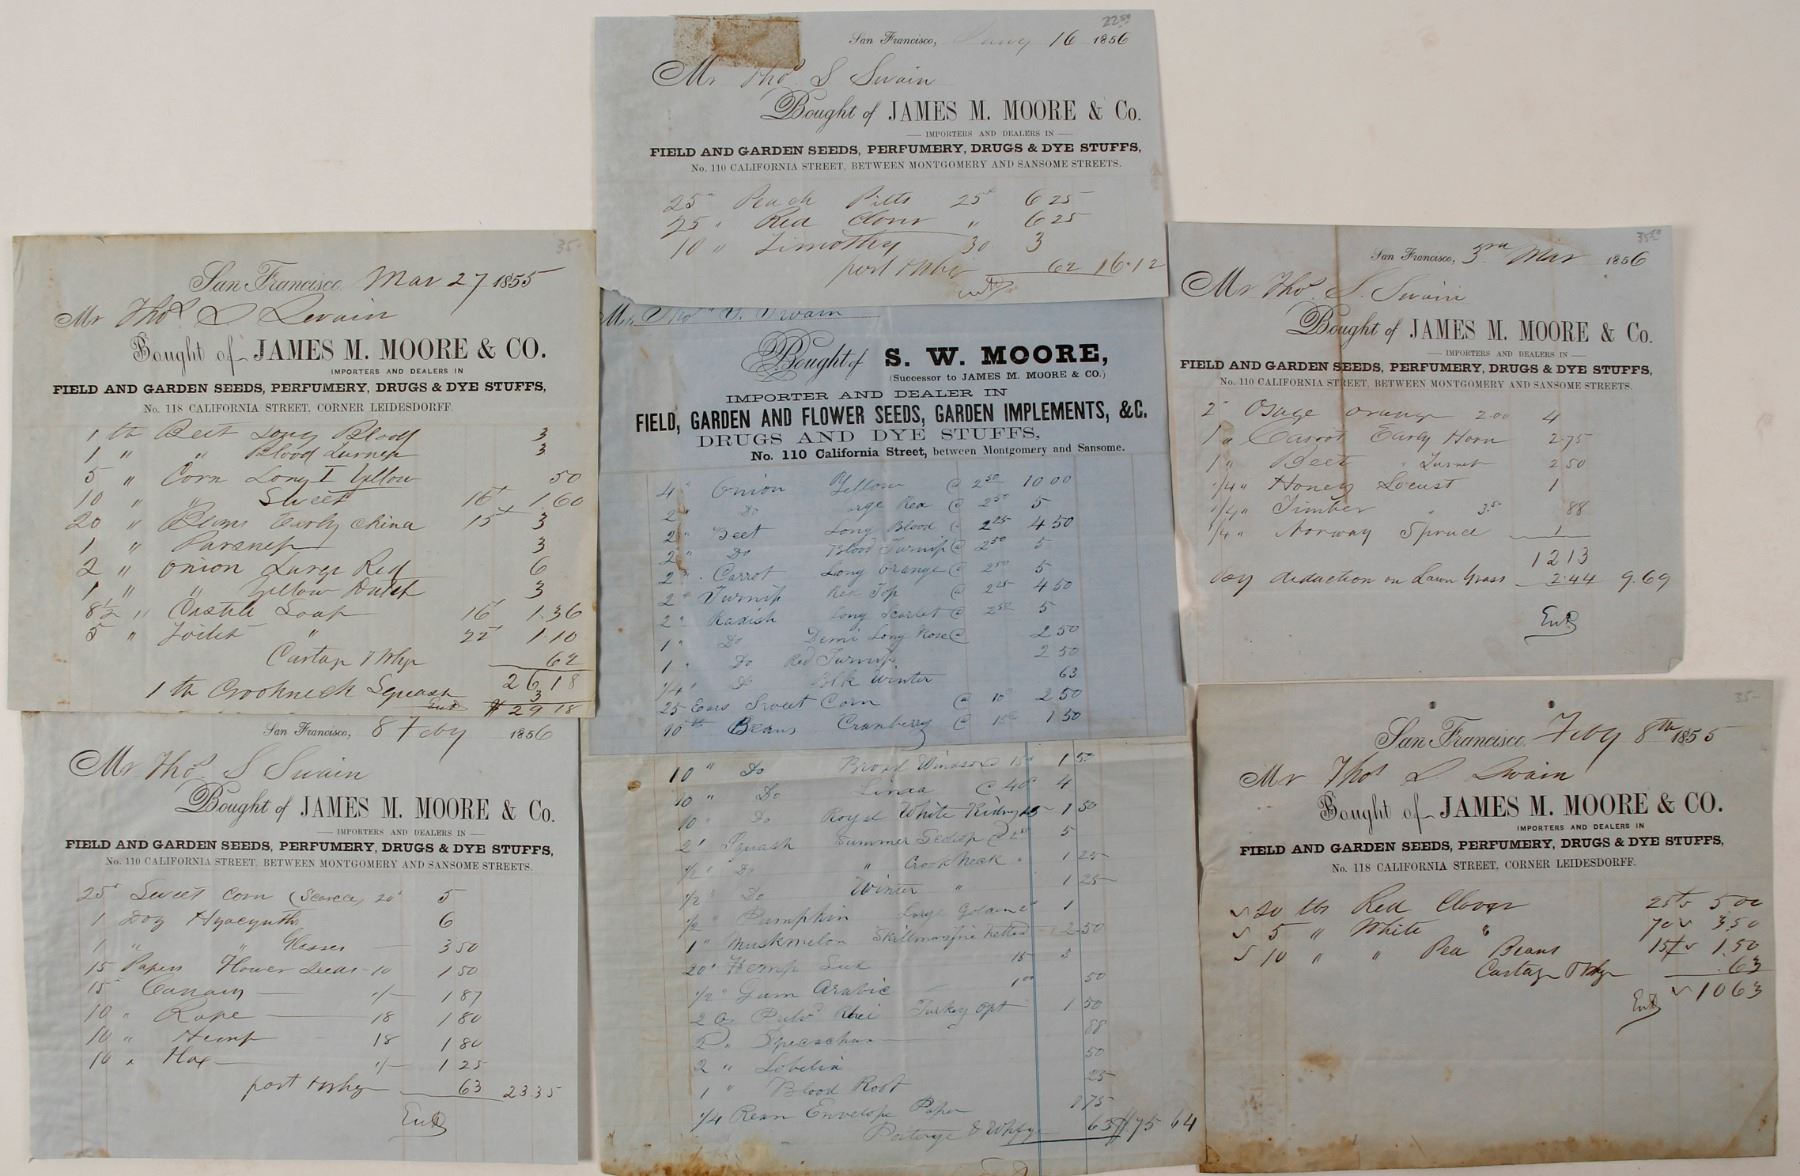 22.50
San Francisco, 16 1856
Mr Thos S Swain
Bought of JAMES M. MOORE & Co.
IMPORTERS AND DEALERS IN
FIELD AND GARDEN SEEDS, PERFUMERY, DRUGS & DYE STUFFS,
No. 110 CALIFORNIA STREET, BETWEEN MONTGOMERY AND SANSOME STREETS.
25 " Peach Pitts 25 6 25
25 " Red Clover " 6 25
10 " Timothy 30 3
port & whfg 62 16.12
35-
San Francisco, Mar 27 1855
Mr Thos S Swain
Bought of JAMES M. MOORE & CO.
IMPORTERS AND DEALERS IN
FIELD AND GARDEN SEEDS, PERFUMERY, DRUGS & DYE STUFFS,
No. 118 CALIFORNIA STREET, CORNER LEIDESDORFF.
1 lb Beet Long Blood 3
1 " " Blood Turnip 3
5 " Corn Long Yellow 50
10 " " Sweet 16 1.60
20 " Beans Early China 15 3
1 " Parsnep 3
2 " Onion Large Red 6
1 " " Yellow Dutch 3
8½ " Castile Soap 16 1.36
5 " Toilet " 22 1.10
Cartage & Whfg 62
26 18
1 lb Crookneck Squash 3
$29 18
Thos S. Swain
Bought of S. W. MOORE,
(Successor to JAMES M. MOORE & CO.)
IMPORTER AND DEALER IN
FIELD, GARDEN AND FLOWER SEEDS, GARDEN IMPLEMENTS, &C.
DRUGS AND DYE STUFFS,
No. 110 California Street, between Montgomery and Sansome.
4 " Onion Yellow @ 2 50 10 00
2 " Do Large Red @ 2 50 5
2 " Beet Long Blood @ 2 25 4 50
2 " Do Blood Turnip @ 2 50 5
2 " Carrot Long Orange @ 2 50 5
2 " Turnip Red Top @ 2 25 4 50
2 " Radish Long Scarlet @ 2 50 5
1 " Do Demi Long Rose @ 2 50
1 " Do Red Turnip 2 50
1/4 " Do Blk Winter 63
25 Ears Sweet Corn @ 10c 2 50
10 lb Beans Cranberry @ 15c 1 50
10 " Do Broad Windsor 15 1 50
10 " Do Limaa @ 40 4
10 " Do Royal White Kidney 15 1 50
2 " Squash Summer Scallop @ 2 50 5
1/2 " Do " Crook Neck " 1 25
1/2 " Do Winter " 1 25
1/2 " Pumpkin Large 1
1 " Muskmelon Skillmans fine netted 2 50
20 " Hemp Seed 15 3
1/2 " Gum Arabic 1 00 50
2 Oz Pulv Rhei Turkey opt 1 50
2 " 88
2 " Lobelia 50
1 " Blood Root 25
1/4 Ream Envelope Paper 75
Porterge & Whfge 63 $75 64
35.00
San Francisco, 3rd Mar 1856
Mr Thos. S. Swain
Bought of JAMES M. MOORE & Co.
IMPORTERS AND DEALERS IN
FIELD AND GARDEN SEEDS, PERFUMERY, DRUGS & DYE STUFFS,
No. 110 CALIFORNIA STREET, BETWEEN MONTGOMERY AND SANSOME STREETS.
2 " Osage orange 2.00 4
1 " Carrot Early Horn 2.75
1 " Beet " Turnip 2 50
1/4 " Honey Locust 1
1/4 " Timber " 3.5 88
1/4 " Norway Spruce 1
12 13
By deduction on Lawn Grass 2.44 9.69
San Francisco, 8 Feby 1856
Mr Thos. S Swain
Bought of JAMES M. MOORE & Co.
IMPORTERS AND DEALERS IN
FIELD AND GARDEN SEEDS, PERFUMERY, DRUGS & DYE STUFFS,
No. 110 CALIFORNIA STREET, BETWEEN MONTGOMERY AND SANSOME STREETS.
25 " Sweet Corn (Scarce) 20 5
1 Doz Hyacynths 6
1 " " Glasses 3 50
15 Papers Flower Seeds 10 1 50
15 " Canary 1 87
10 " Rape 18 1 80
10 " Hemp 18 1 80
10 " Flax 1 25
port & whfg 63 23.35
35-
San Francisco, Feby 8th 1855
Mr Thos S Swain
Bought of JAMES M. MOORE & CO.
IMPORTERS AND DEALERS IN
FIELD AND GARDEN SEEDS, PERFUMERY, DRUGS & DYE STUFFS,
No. 118 CALIFORNIA STREET, CORNER LEIDESDORFF.
20 lbs Red Clover 25 5 00
5 " White " 70 3.50
10 " " Pea Beans 15 1.50
Cartage & Whfg .63
10 63